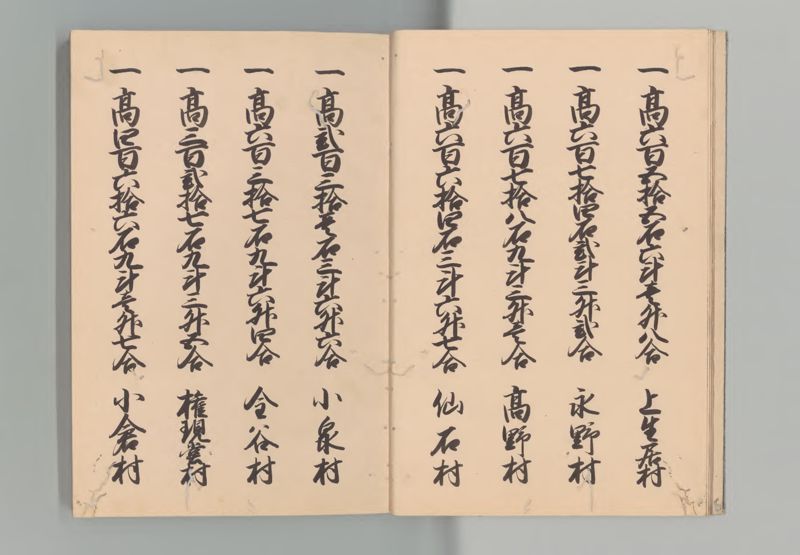 一高六百五拾五石六斗壱升八合 上生居村
一高六百七拾四石弐斗三升弐合 永野村
一高六百七拾八石九斗三升壱合 高野村
一高六百六拾四石三斗六升七合 仙石村
一高弐百三拾壱石三斗六升六合 小泉村
一高六百三拾七石九斗六升四合 金谷村
一高三百弐拾七石九斗三升五合 権現堂村
一高四百六拾六石九斗壱升七合 小倉村